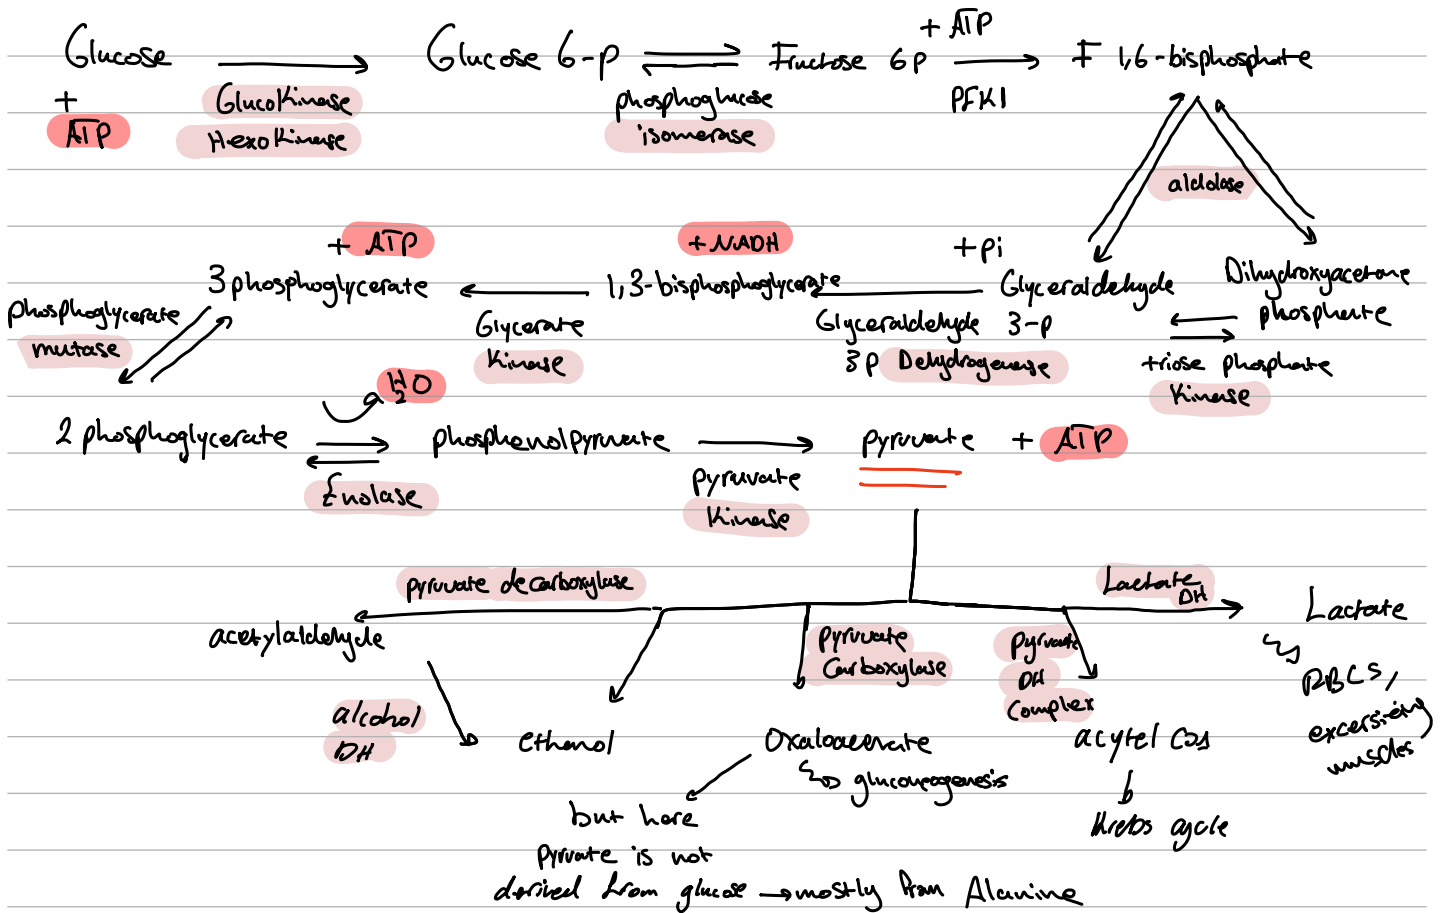 Glucose → Glucose 6-p ⇌ Fructose 6p → F 1,6-bisphosphate
+ ATP
+
ATP
Glucokinase
Hexokinase
phosphoglucose
isomerase
PFK1
aldolase
Dihydroxyacetone
phosphate
+ pi
Glyceraldehyde
3-p
triose phosphate
Kinase
Glyceraldehyde
3p Dehydrogenase
+ NADH
1,3-bisphosphoglycerate
Glycerate
Kinase
+ ATP
3 phosphoglycerate
phosphoglycerate
mutase
2 phosphoglycerate
H2O
Enolase
phosphenolpyruvate
pyruvate
Kinase
pyruvate + ATP
pyruvate decarboxylase
acetylaldehyde
alcohol
DH
ethanol
pyruvate
Carboxylase
Oxaloacetate
gluconeogenesis
but here
pyruvate is not
derived from glucose → mostly from Alanine
pyruvate
DH
Complex
acytel CoA
Krebs cycle
Lactate
DH
Lactate
RBCS,
excersizing
muscles